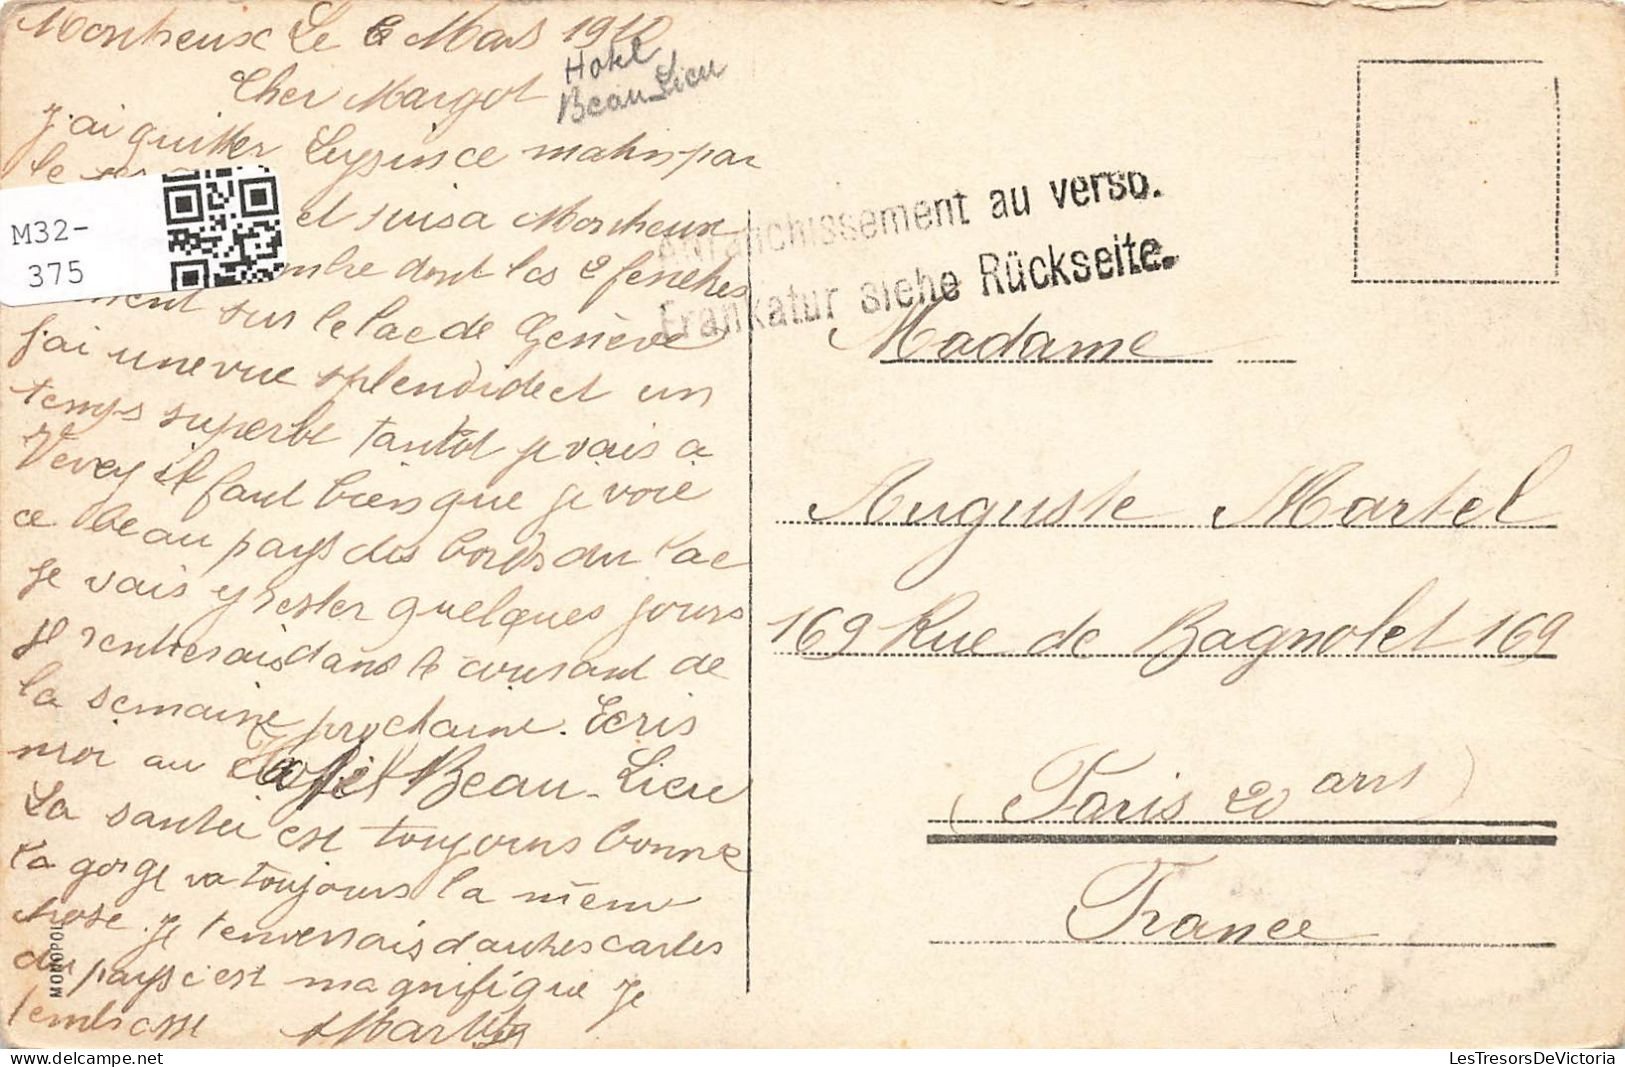 Montreux Le 6 Mars 1910
Hotel
Beau Lieu
Cher Margot
J'ai quitter Leysin ce matin par
le
et suis a Montreux
dont les 2 fenetres
sur le lac de Genève
J'ai une vue splendide et un
temps superbe tantôt je vais a
Vevey il faut bien que je voie
ce beau pays des bords du lac
Je vais y rester quelques jours
je rentrerais dans le courant de
la semaine prochaine. Ecris
moi au Beau-Lieu
La santer est toujours bonne
la gorge va toujours la mêm
chose. Je t'enverrais d'autres cartes
du pays c'est magnifique Je
t'embrasse
M32-
375
MONOPOL
Affranchissement au verso.
Frankatur siehe Rückseite.
Madame
Auguste Martel
169 Rue de Bagnolet 169
(Paris 20 arrt)
France
LesTresorsDeVictoria